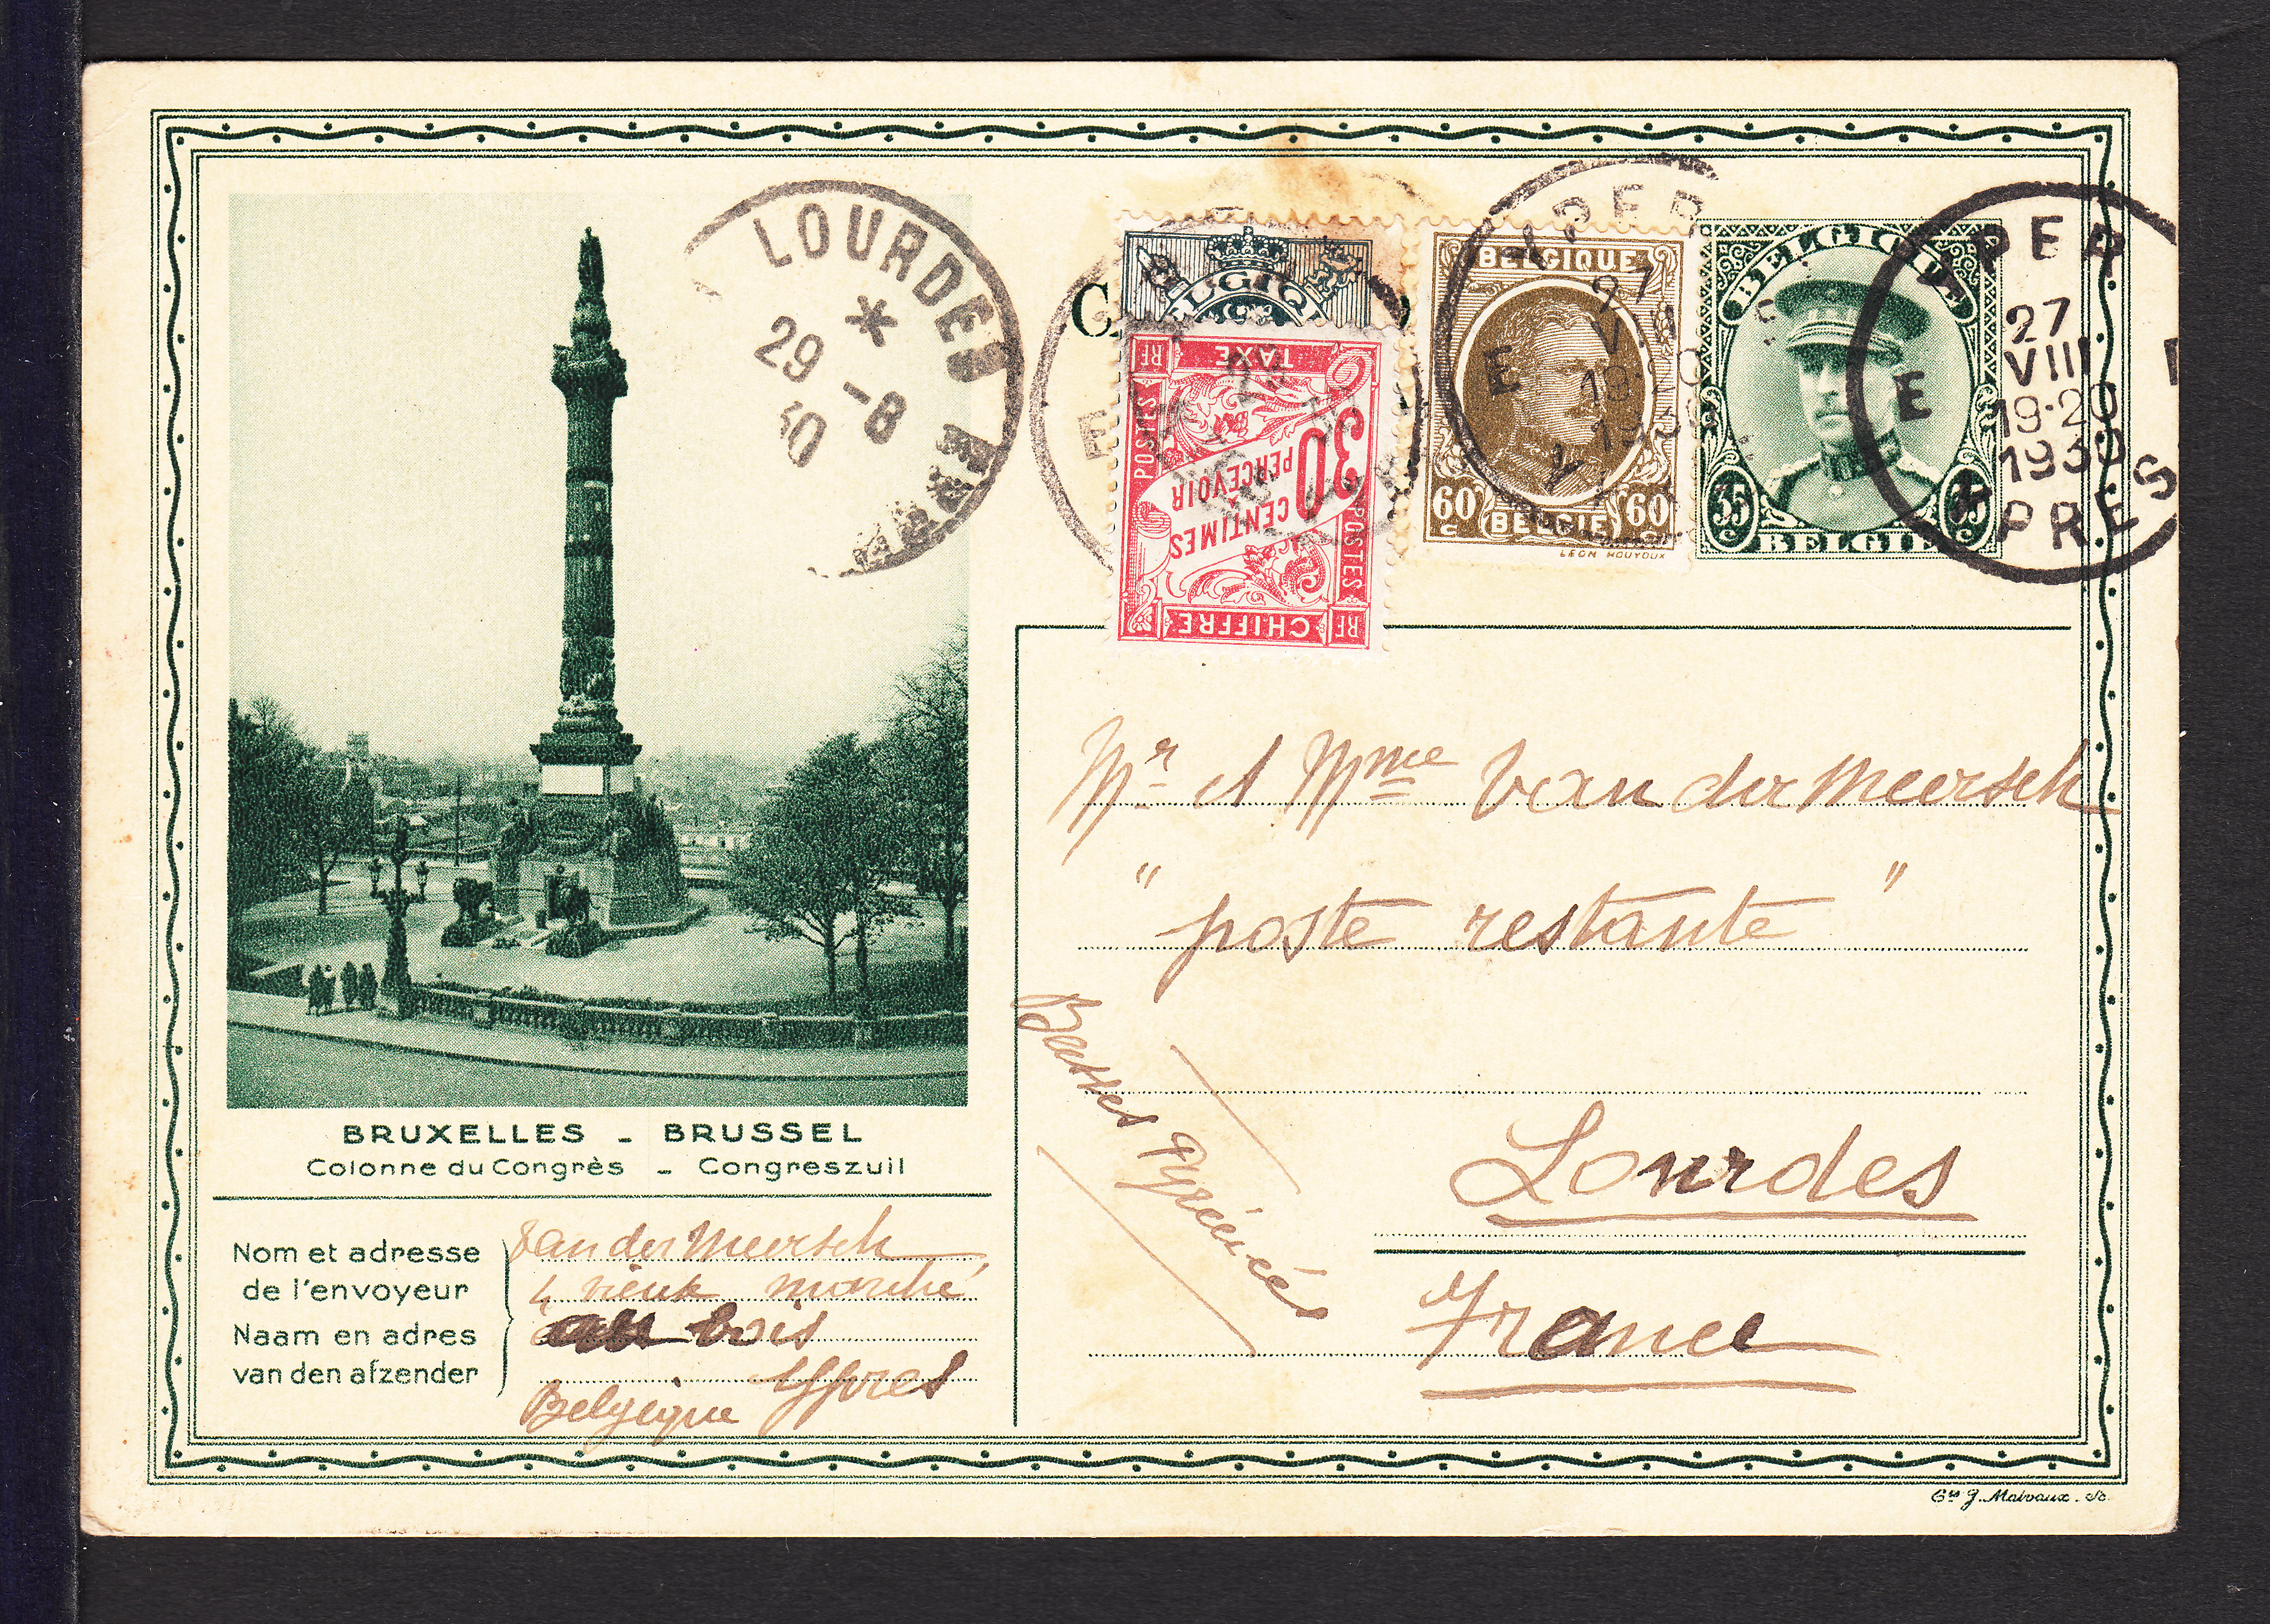 LOURDES
29 -8
30
BELGIQUE
POSTES
RF TAXE RF
30
CENTIMES
A PERCEVOIR
POSTES
RF CHIFFRE RF
BELGIQUE
60 c BELGIË 60 c
LÉON HOUYOUX
IEPER
E
YPRES
BELGIQUE
35 c BELGIË 35 c
IEPER
27
VIII
19-20
1930
E E
YPRES
Mr et Mme Van der Meersch
"poste restante"
Basses Pyrénées
Lourdes
France
BRUXELLES - BRUSSEL
Colonne du Congrès - Congreszuil
Nom et adresse
de l'envoyeur
Naam en adres
van den afzender
Van der Meersch
4 vieux marché
au bois
Ypres
Belgique
Ets J. Malvaux. Sc.